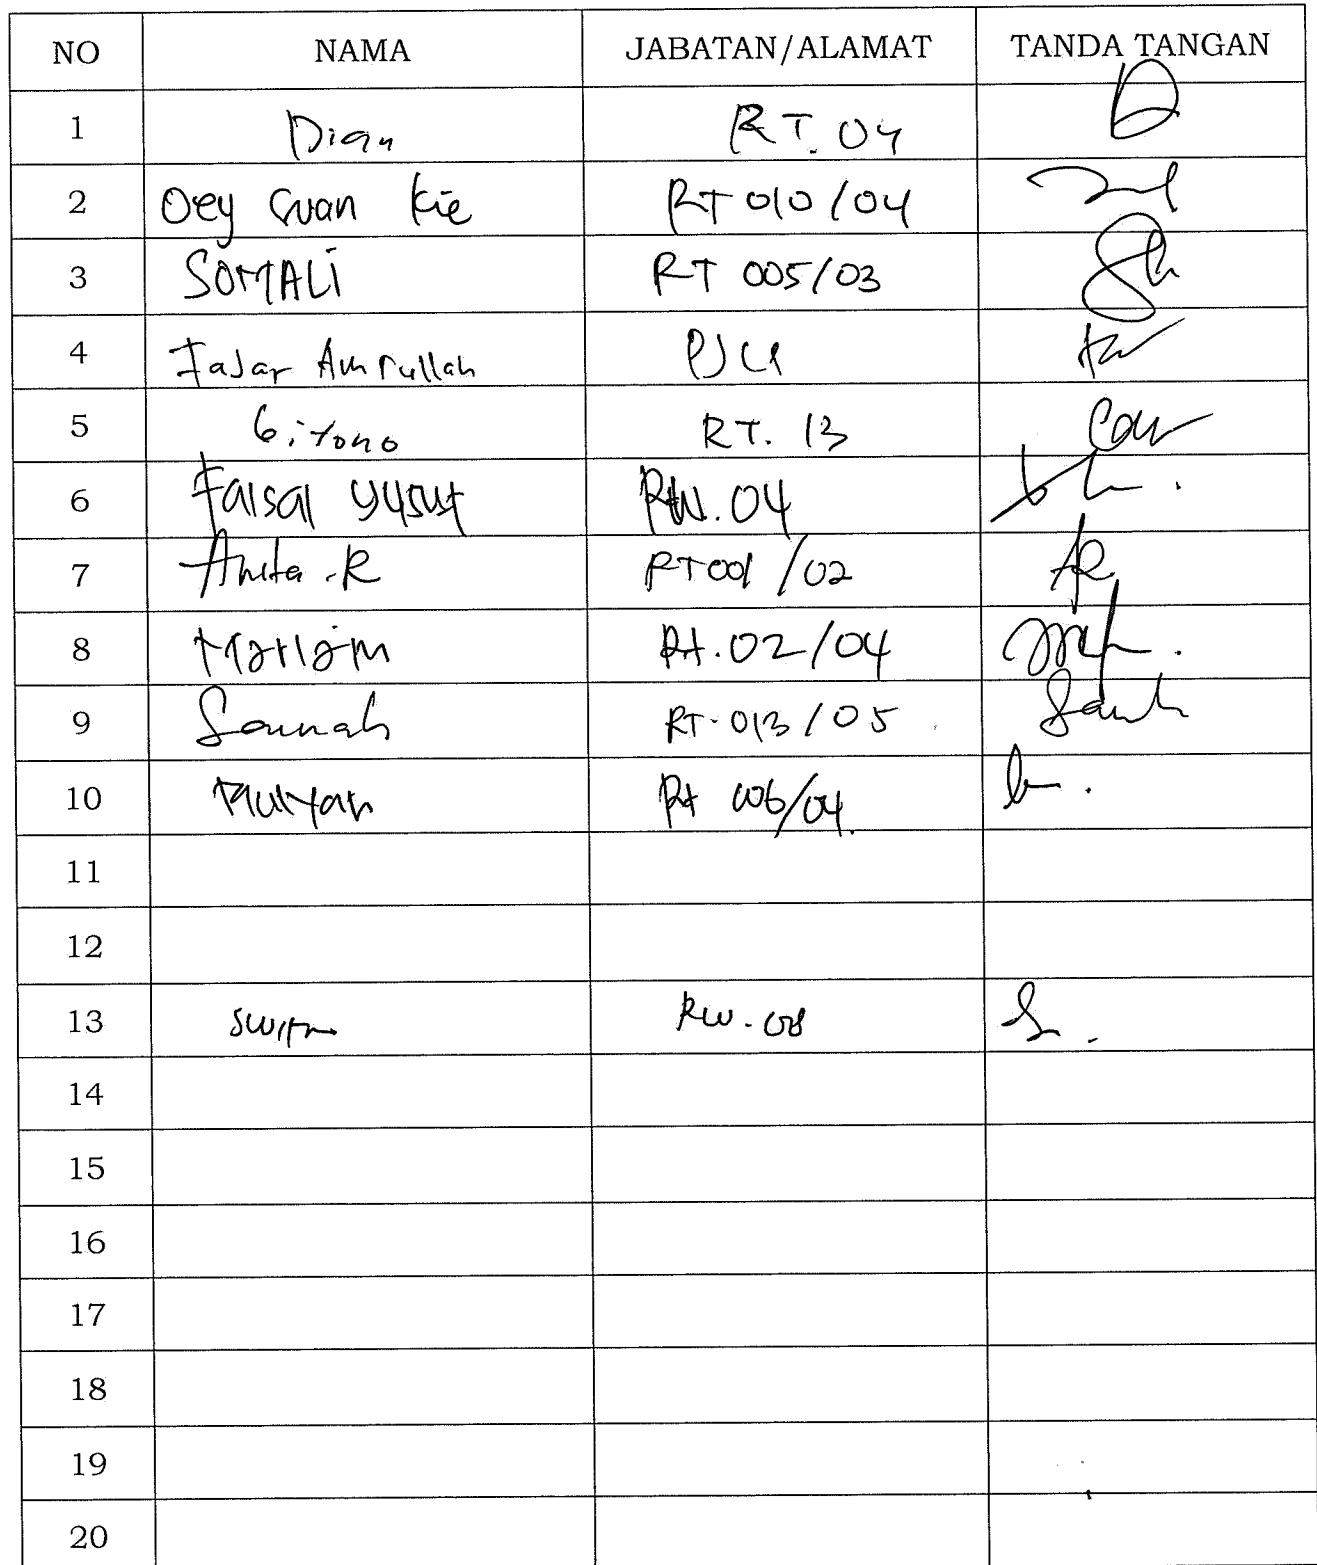 NO NAMA JABATAN/ALAMAT TANDA TANGAN
1 Dian RT. 04
2 Oey Guan Kie RT 010/04
3 SOMALI RT 005/03
4 Fajar Amrullah PJLP
5 Giyono RT. 13
6 Faisal Yusuf RW. 04
7 Anita.R RT001/02
8 Mariam Rt.02/04
9 Sannah RT.013/05
10 Mulyan Rt 006/04
11
12
13 RW.08
14
15
16
17
18
19
20